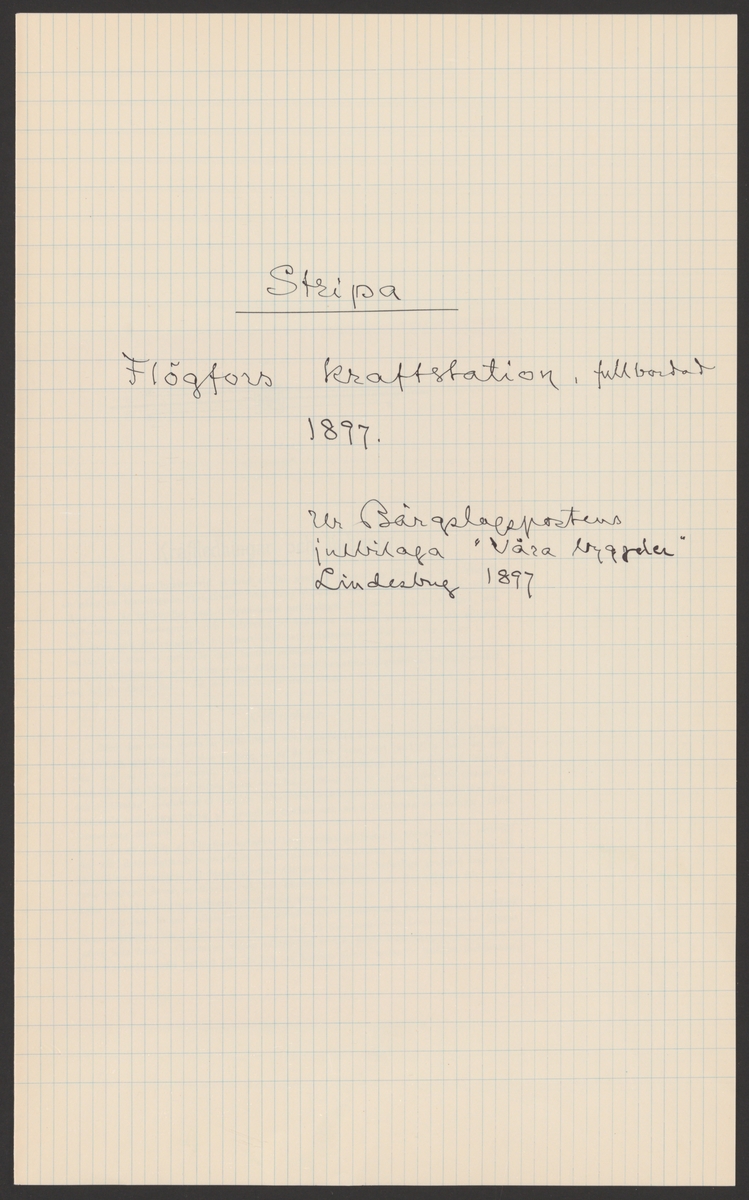 Stripa
Flögfors kraftstation, fullbordad
1897.
Ur Bärgslagspostens
julbilaga "Våra bygder"
Lindesberg 1897